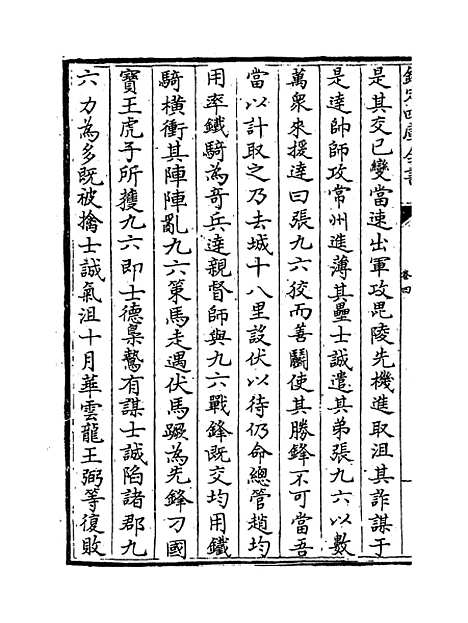 欽定四庫全書
卷四
是其交已變當速出軍攻毘陵先機進取沮其詐謀于
是達帥師攻常州進薄其壘士誠遣其弟張九六以數
萬衆來援達曰張九六狡而善鬭使其勝鋒不可當吾
當以計取之乃去城十八里設伏以待仍命總管趙均
用率鐵騎為奇兵達親督師與九六戰鋒既交均用鐵
騎橫衝其陣陣亂九六策馬走遇伏馬蹶為先鋒刁國
寶王虎子所獲九六即士德梟鷙有謀士誠陷諸郡九
六力為多既被擒士誠氣沮十月華雲龍王弼等復敗